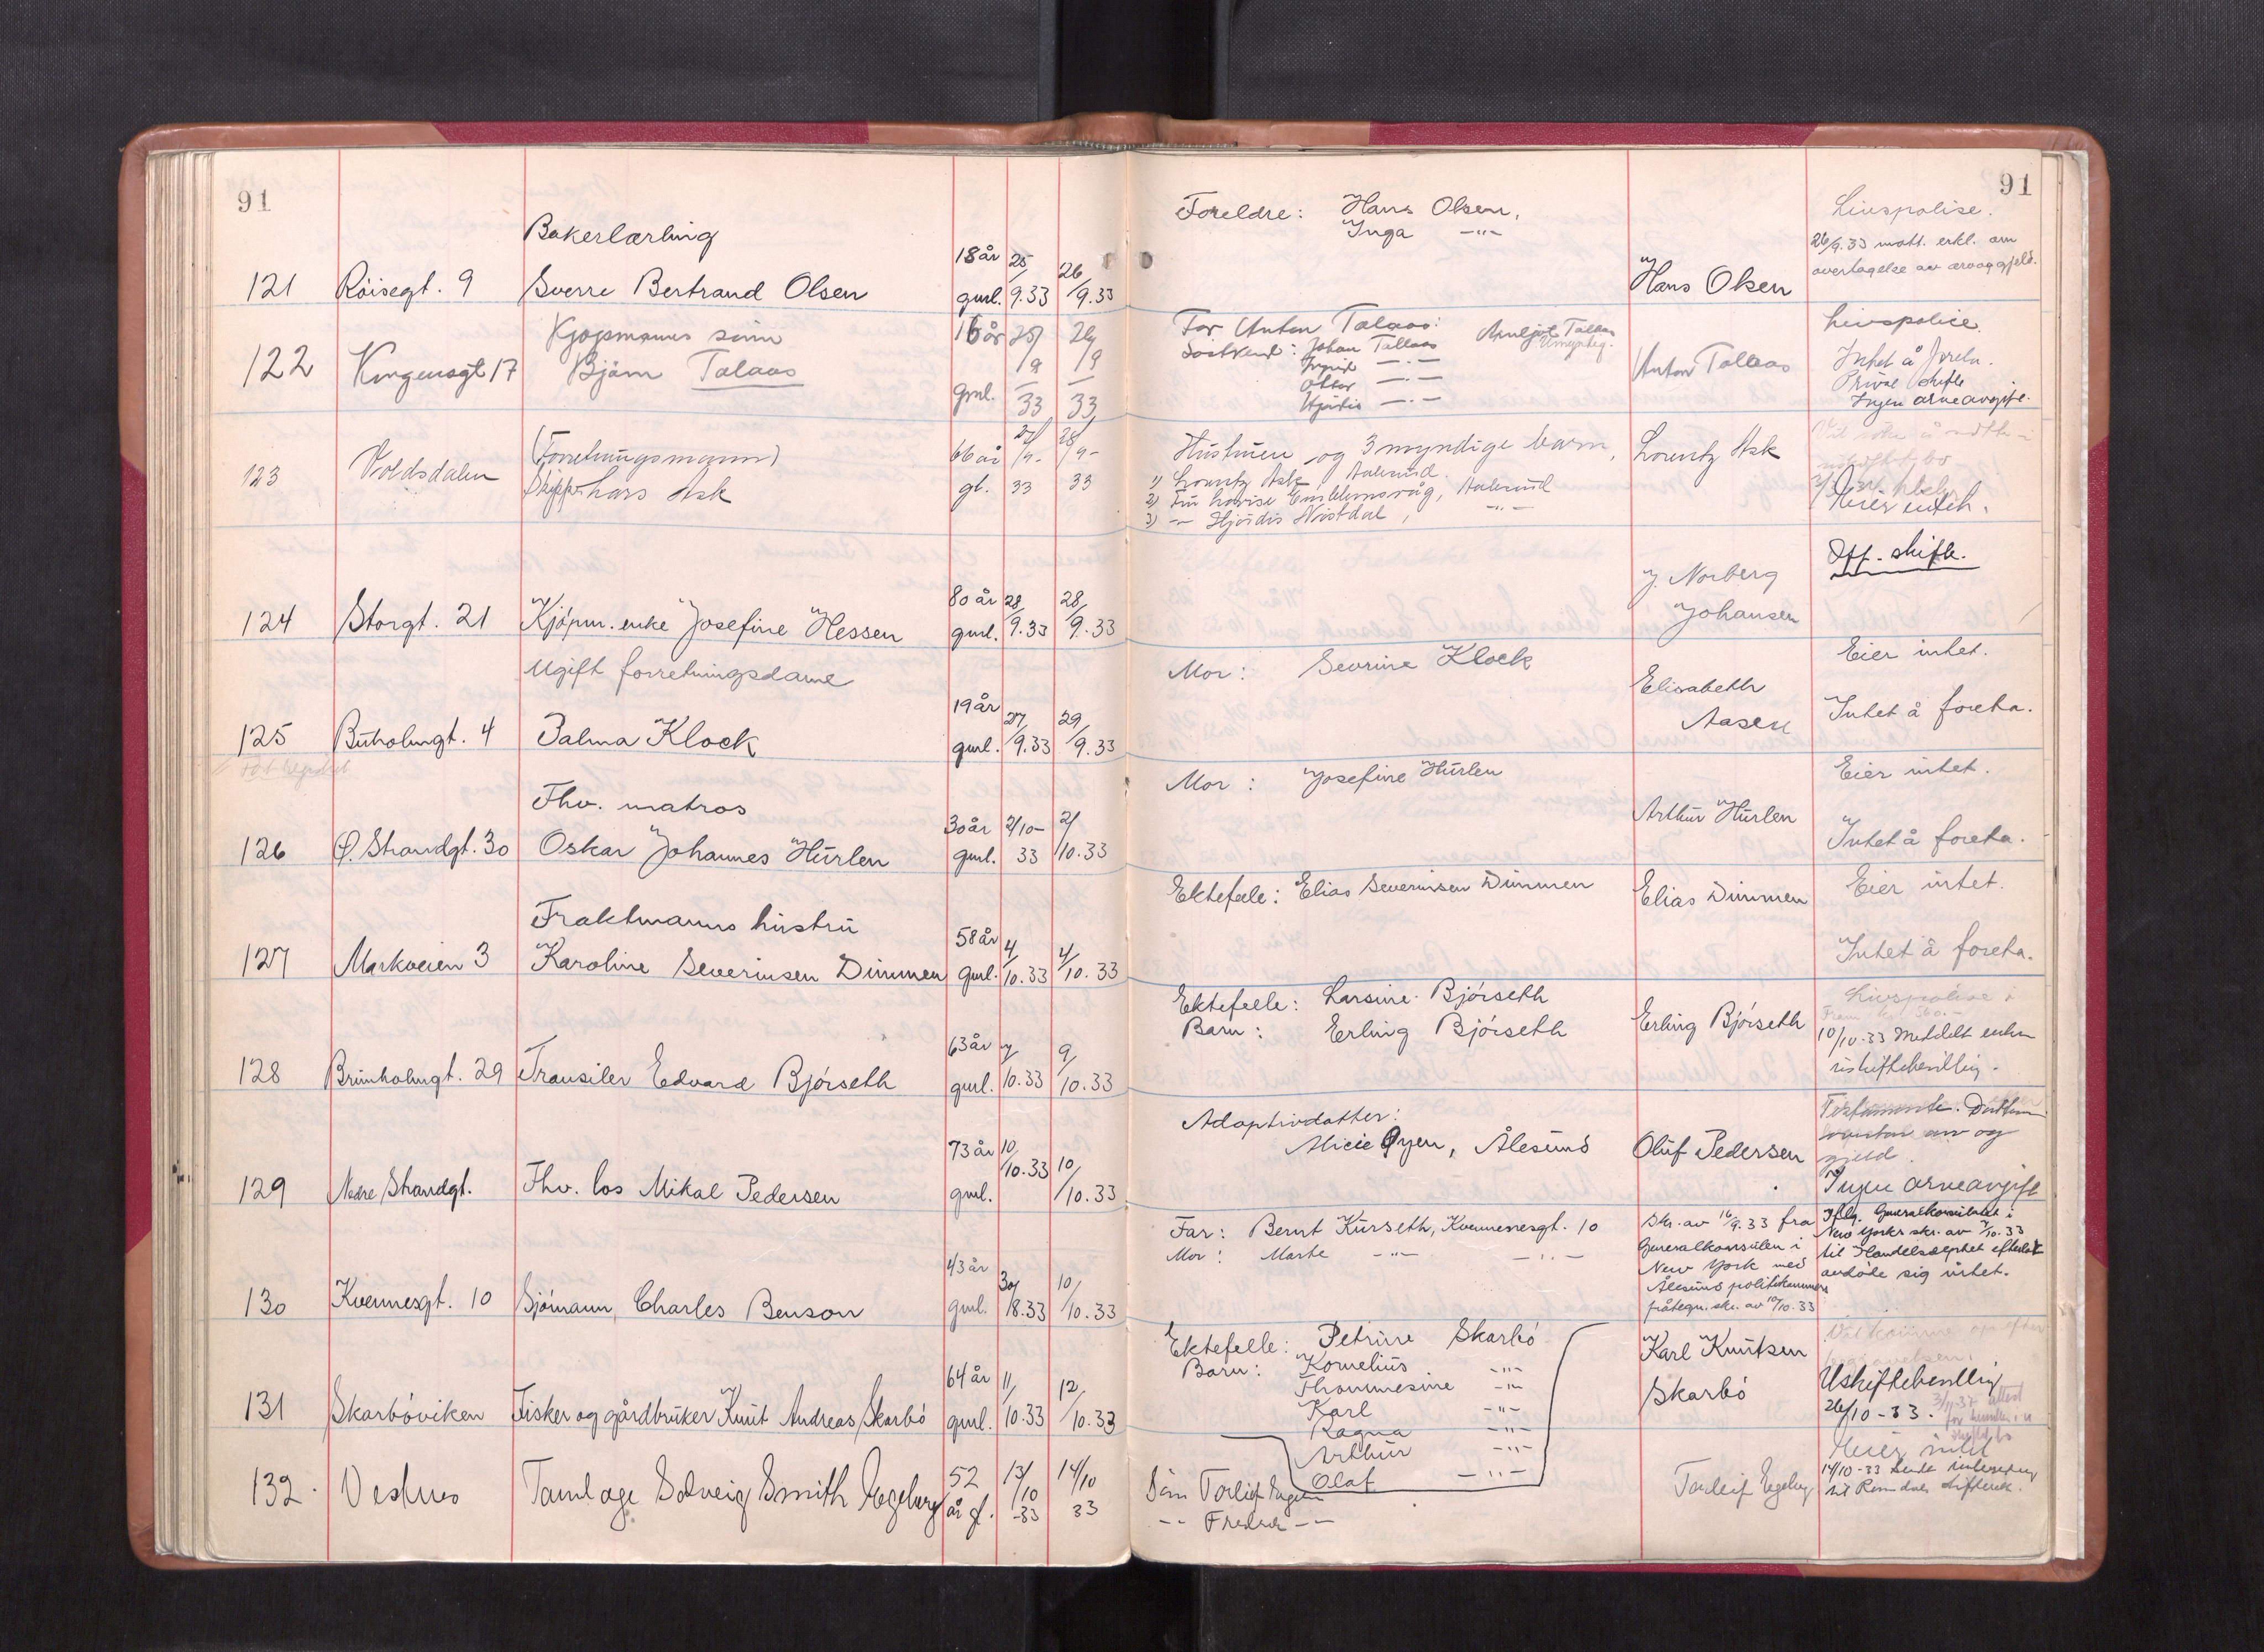 91
Bakerlærling
121 Röisegt. 9 Sverre Bertrand Olsen 18 år gml. 25/9.33 26/9.33
Kjøpmanns sönn
122 Kongensgt 17 Björn Talaas 16 år gml. 25/9 33 26/9 33
(Forretningsmann)
123 Voldsdalen Skipper Lars Ask 66 år gl. 27/9- 33 28/9- 33
124 Storgt. 21 Kjöpm. enke Josefine Hessen 80 år gml. 28/9.33 28/9.33
Ugift forretningsdame
125 Buholmgt. 4 Palma Klock 19 år gml. 27/9.33 29/9.33
Thv. matros
126 Ø. Strandgt. 30 Oskar Johannes Hurlen 30 år gml. 2/10- 33 2/10.33
Fraktmanns hustru
127 Markveien 3 Karoline Severinsen Dimmen 58 år gml. 4/10.33 4/10.33
128 Brunholmgt. 29 Transiler Edvard Bjørseth 63 år gml. 7/10.33 9/10.33
129 Nedre Strandgt. Fhv. los Mikal Pedersen 73 år gml. 10/10.33 10/10.33
130 Kvennesgt. 10 Sjømann, Charles Benson 43 år gml. 30/8.33 10/10.33
131 Skarbøviken Fisker og gårdbruker Knut Andreas Skarbö 64 år gml. 11/10.33 12/10.33
132. Vestnes Tannlæge Solveig Smith Egeberg 52 år gl. 13/10 -33 14/10 33
91
Foreldre: Hans Olsen,
Inga -"-
Hans Olsen
Livspolise.
26/9.33 mott. erkl. om
overtagelse av arv og gjeld.
Far Anton Talaas:
Söskend: Johan Tallaas
Ingrid -"-
Ottar -"-
Hjördis -"-
Anton Tallaas
Livspolice.
Intet å foreta.
Privat skifte
Ingen arveavgift.
Hustruen og 3 myndige barn,
1) Lorentz Ask, Aalesund.
2) Fru Lovise Emblemsvåg, Aalesund
3) -"- Hjördis Nistdal, -"-
Lorentz Ask
Off. skifte.
J. Norberg
Johansen
Mor: Sevrine Klock
Elisabeth
Aasen
Eier intet.
Intet å foreta.
Mor: Josefine Hurlen
Arthur Hurlen
Eier intet.
Intet å foreta.
Ektefelle: Elias Severinsen Dimmen
Elias Dimmen
Eier intet.
Intet å foreta.
Ektefelle: Larsine Bjørseth
Barn: Erling Bjørseth
Erling Bjørseth
Livspolise
10/10-33 Meddelt enken
uskiftebevilling.
Adoptivdatter:
Alicie Øyen, Ålesund
Oluf Pedersen
Testamente. Datteren
overtar arv og
gjeld.
Ingen arveavgift
Far: Bernt Kurseth, Kvennesgt. 10
Mor: Marte -"- -"-
Skr. av 16/9.33 fra
Generalkonsulen i
New York med
Ålesund politikammers
påtegn. skr. av 10/10.33
Iflg. Generalkonsulatet i
New Yorks skr. av 7/10.33
til Handelsdeptet efterlot
avdøde sig intet.
Ektefelle: Petrine Skarbö
Barn: Kornelius -"-
Thommesine -"-
Karl -"-
Ragna -"-
Arthur -"-
Olaf -"-
Karl Knutsen
Skarbö
Uskiftebevilling
26/10-33.
Sönn Torleif Egeberg
-"- Fredrik -"-
Torleif Egeberg
14/10-33 Sendt
til Romsdal skifterett.